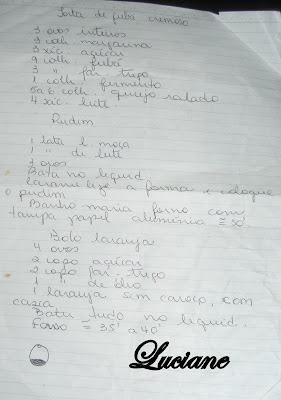 Torta de fubá cremoso
3 ovos inteiros
2 colh. margarina
3 xíc. açúcar
9 colh. fubá
3 " far. trigo
1 colh. fermento
5 a 6 colh. queijo ralado
4 xíc. leite.
Pudim
1 lata l. moça
1 " de leite
3 ovos
Bata no liquid.
caramelize a forma e coloque
o pudim.
Banho maria forno com
tampa papel alumínio = 50'
Bolo laranja
4 ovos
2 copo açúcar
2 copo far. trigo
1 " de óleo
1 laranja sem caroço, com
casca
Bata tudo no liquid.
Forno = 35' a 40'
Luciane